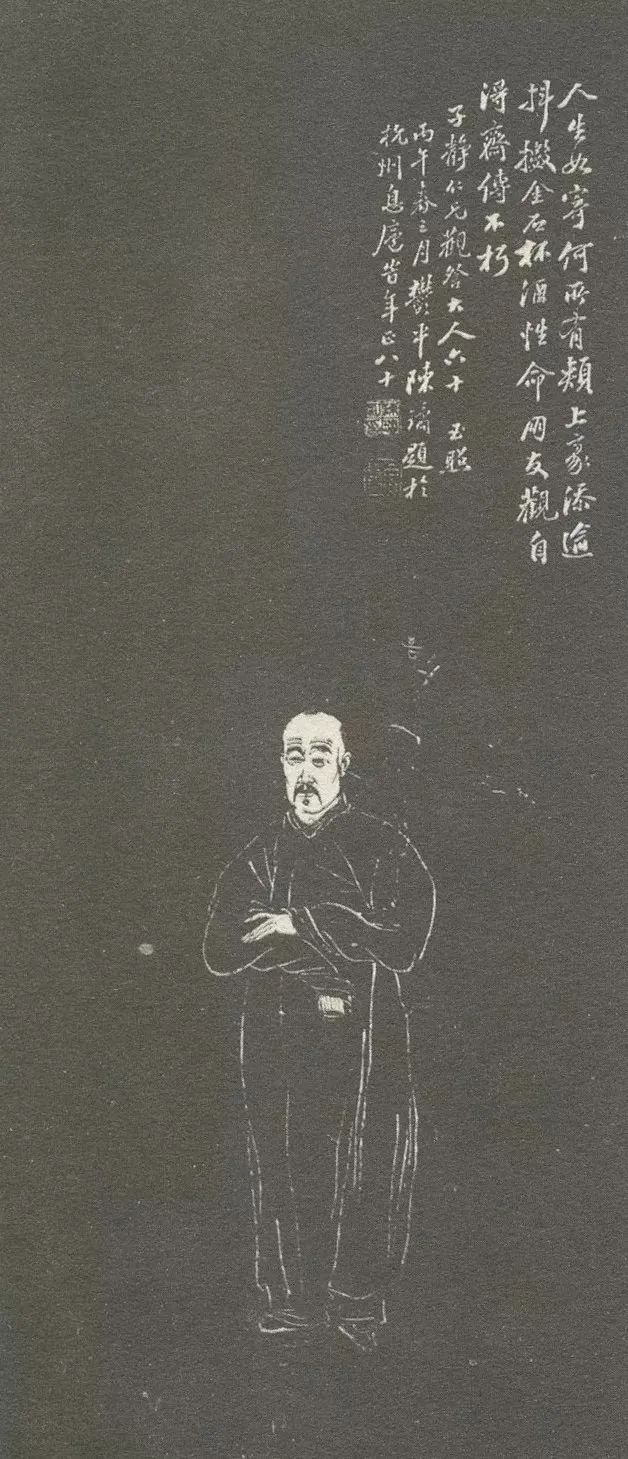 人生如寄何所有頰上豪添逾
抖擻金石杯酒性命朋友觀自
得齋傳不朽
子靜仁兄觀詧大人六十玉照
丙午春三月鬱平陳璚題於
杭州息廬昔年正八十